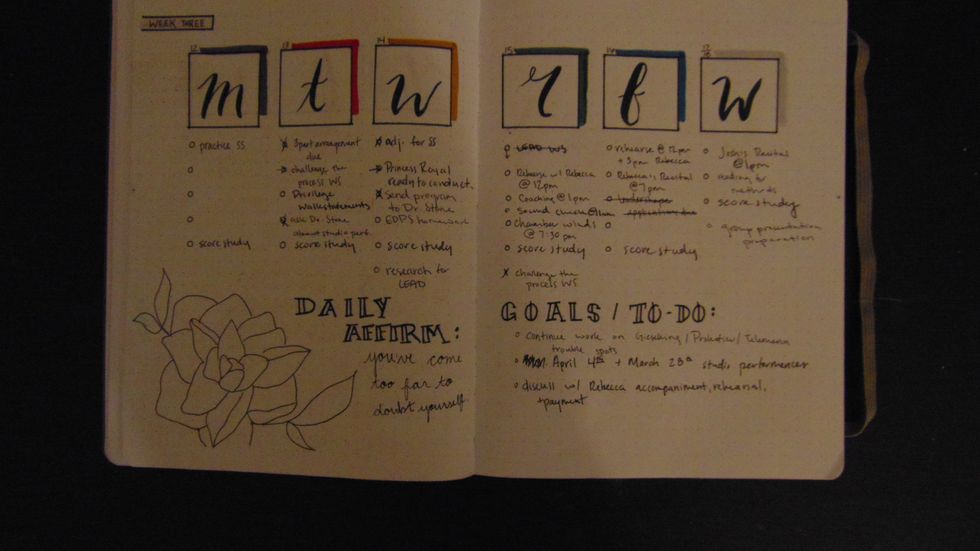 WEEK THREE
12
m
practice SS
score study
13
t
3 part arrangement
due
challenge the
process WS
Privilege
walk statements
ask Dr. Stone
about studio perf.
score study
14
w
adj. for SS
Princess Royal
ready to conduct
Send program
to Dr. Stone
EDPS homework
score study
research for
LEAD
DAILY
AFFIRM:
you've come
too far to
doubt yourself.
15
r
LEAD WS
Rehearse w/ Rebecca
@ 12pm
Coaching @ 1pm
Sound check @
chamber winds
@ 7:30 pm
score study
challenge the
process WS
16
f
rehearse @ 12pm
+ 3pm Rebecca
Rebecca's Recital
@ 7pm
Leadershape
application due
score study
17
18
w
Josh's Recital
@ 1pm
reading for
methods
score study
group presentation
preparation
GOALS / TO-DO:
continue work on Gieseking / Prokofiev / Telemann
trouble spots
April 4th + March 28th studio performances
discuss w/ Rebecca accompaniment, rehearsal,
+ payment